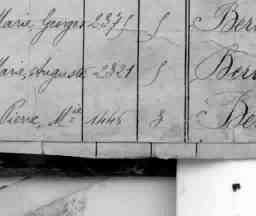 Marie, Georges 2371 S Ber
Marie, Auguste 2321 S Ber
Pierre, Mie 1445 3 Be